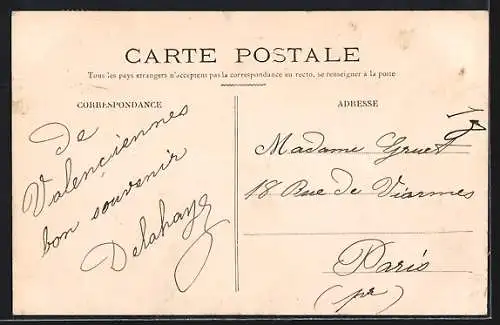 CARTE POSTALE
Tous les pays étrangers n'acceptent pas la correspondance au recto, se renseigner à la poste
CORRESPONDANCE
de
Valenciennes
bon souvenir
Delahaye
ADRESSE
Madame Gruet
18 Rue de Viarmes
Paris